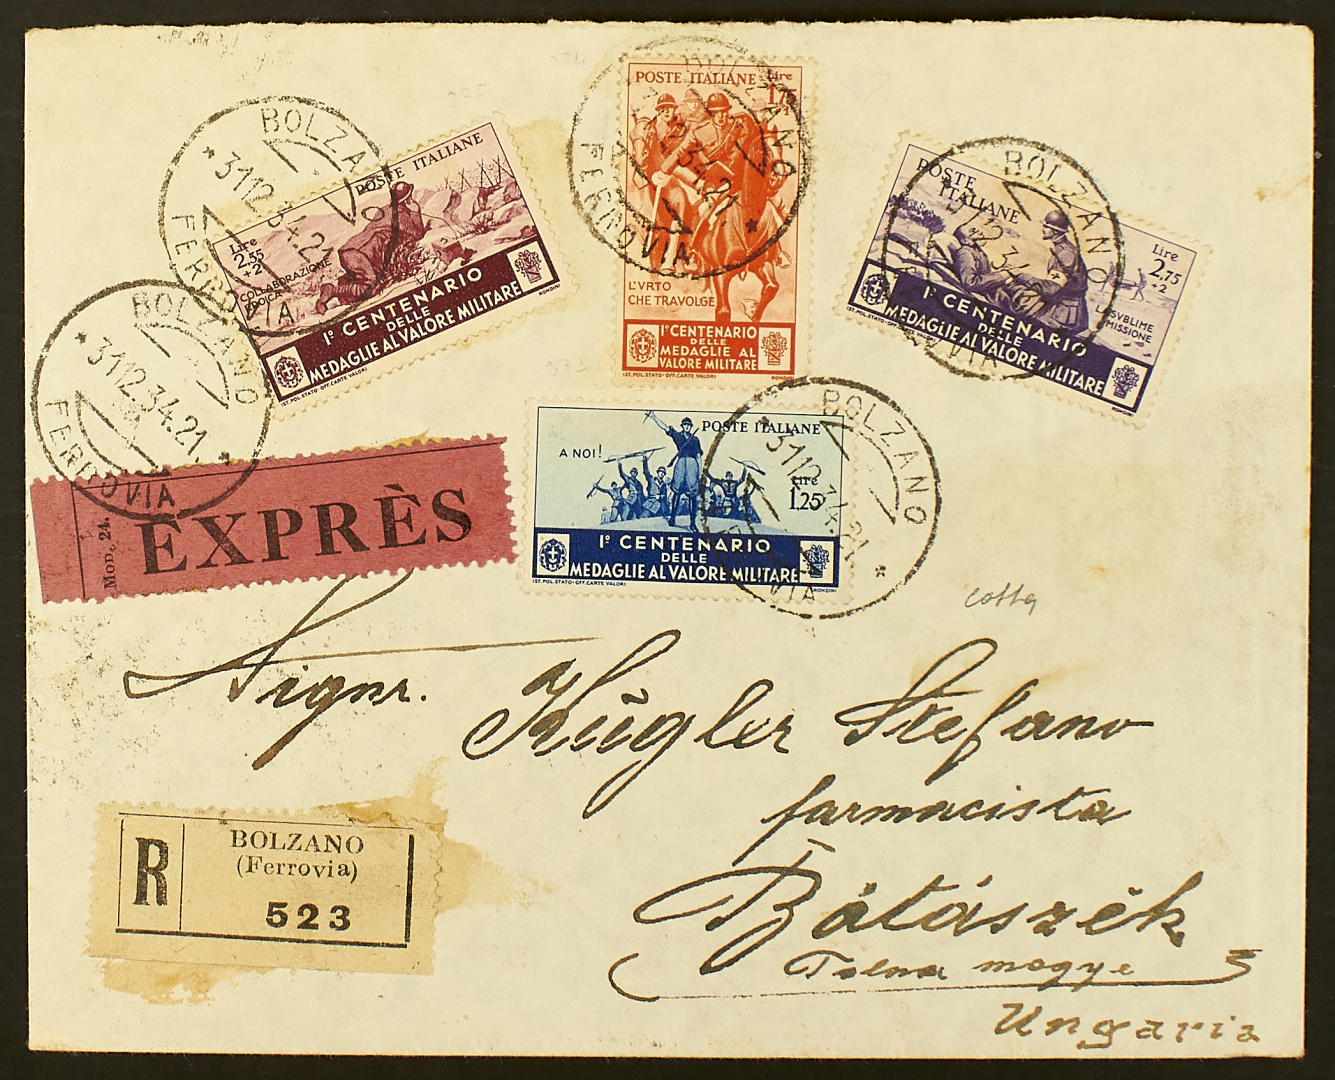 BOLZANO
31 12.34.21
FERROVIA
POSTE ITALIANE
Lire
2.55
+2
COLLABORAZIONE
EROICA
1º CENTENARIO
DELLE
MEDAGLIE AL VALORE MILITARE
IST. POL. STATO - OFF. CARTE VALORI
RONDINI
BOLZANO
12.34.21
FERROVIA
POSTE ITALIANE
Lire
1,75
L'VRTO
CHE TRAVOLGE
1º CENTENARIO
DELLE
MEDAGLIE AL
VALORE MILITARE
IST. POL. STATO - OFF. CARTE VALORI
RONDINI
BOLZANO
POSTE
ITALIANE
Lire
2,75
+2
LA SVBLIME
MISSIONE
1º CENTENARIO
DELLE
MEDAGLIE AL VALORE MILITARE
IST. POL. STATO - OFF. CARTE VALORI
RONDINI
BOLZANO
31 12.34.21.
FERROVIA
Mod. 24.
EXPRÈS
BOLZANO
POSTE ITALIANE
A NOI!
Lire
1,25
1º CENTENARIO
DELLE
MEDAGLIE AL VALORE MILITARE
IST. POL. STATO - OFF. CARTE VALORI
RONDINI
Signr. Kügler Stefano
farmacista
Bátászék
Tolna megye
Ungaria
R
BOLZANO
(Ferrovia)
523